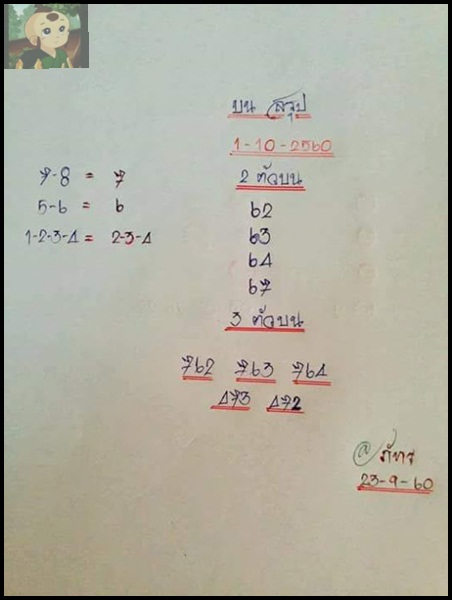 บน สรุป
1-10-2560
7-8 = 7
5-6 = 6
1-2-3-4 = 2-3-4
2 ตัวบน
62
63
64
67
3 ตัวบน
762 763 764
473 472
@ ภัทร
23-9-60